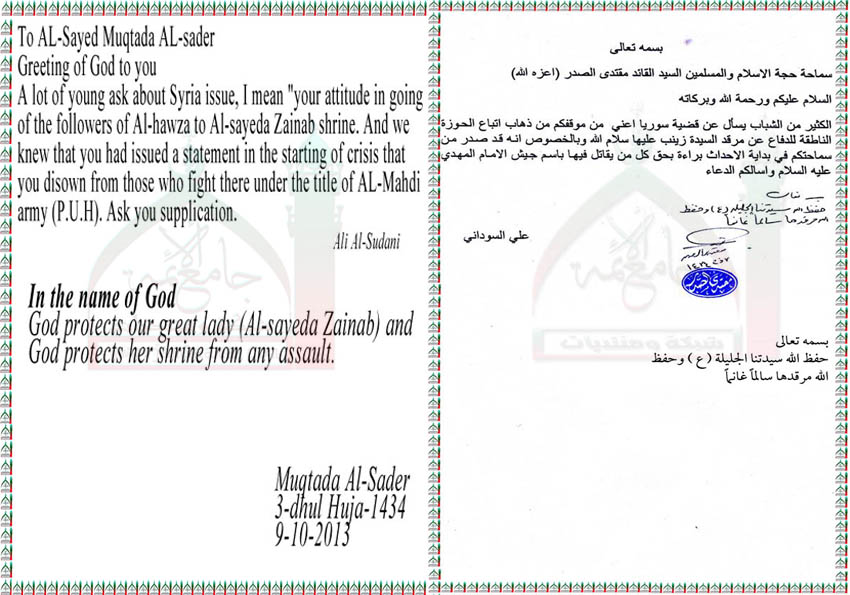 To AL-Sayed Muqtada AL-sader
Greeting of God to you
A lot of young ask about Syria issue, I mean "your attitude in going
of the followers of Al-hawza to Al-sayeda Zainab shrine. And we
knew that you had issued a statement in the starting of crisis that
you disown from those who fight there under the title of AL-Mahdi
army (P.U.H). Ask you supplication.
Ali Al-Sudani
In the name of God
God protects our great lady (Al-sayeda Zainab) and
God protects her shrine from any assault.
Muqtada Al-Sader
3-dhul Huja-1434
9-10-2013
بسمه تعالى
سماحة حجة الاسلام والمسلمين السيد القائد مقتدى الصدر (اعزه الله)
السلام عليكم ورحمة الله وبركاته
الكثير من الشباب يسأل عن قضية سوريا اعني من موقفكم من ذهاب اتباع الحوزة
الناطقة للدفاع عن مرقد السيدة زينب عليها سلام الله وبالخصوص انه قد صدر من
سماحتكم في بداية الاحداث براءة بحق كل من يقاتل فيها باسم جيش الامام المهدي
عليه السلام واسالكم الدعاء
حفظ الله سيدتنا الجليلة (ع) وحفظ
الله مرقدها سالماً غانماً
علي السوداني
بسمه تعالى
حفظ الله سيدتنا الجليلة (ع) وحفظ
الله مرقدها سالماً غانماً
جامع الائمة
شبكة ومنتديات